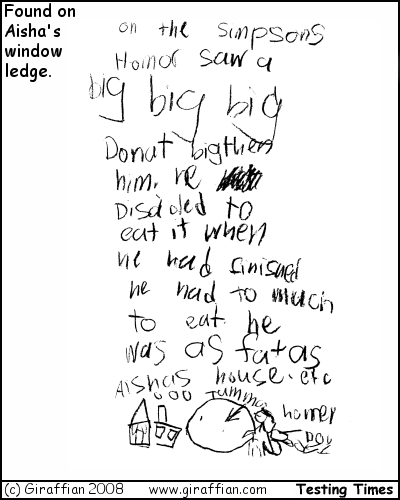 Found on
Aisha's
window
ledge.
on the simpsons
Homor saw a
big big big
Donut bigthen
him. he
Disdoled to
eat it when
he had finished
he had to much
to eat he
was as fat as
Aishas house. etc
Tummy
homer
(c) Giraffian 2008 www.giraffian.com Testing Times